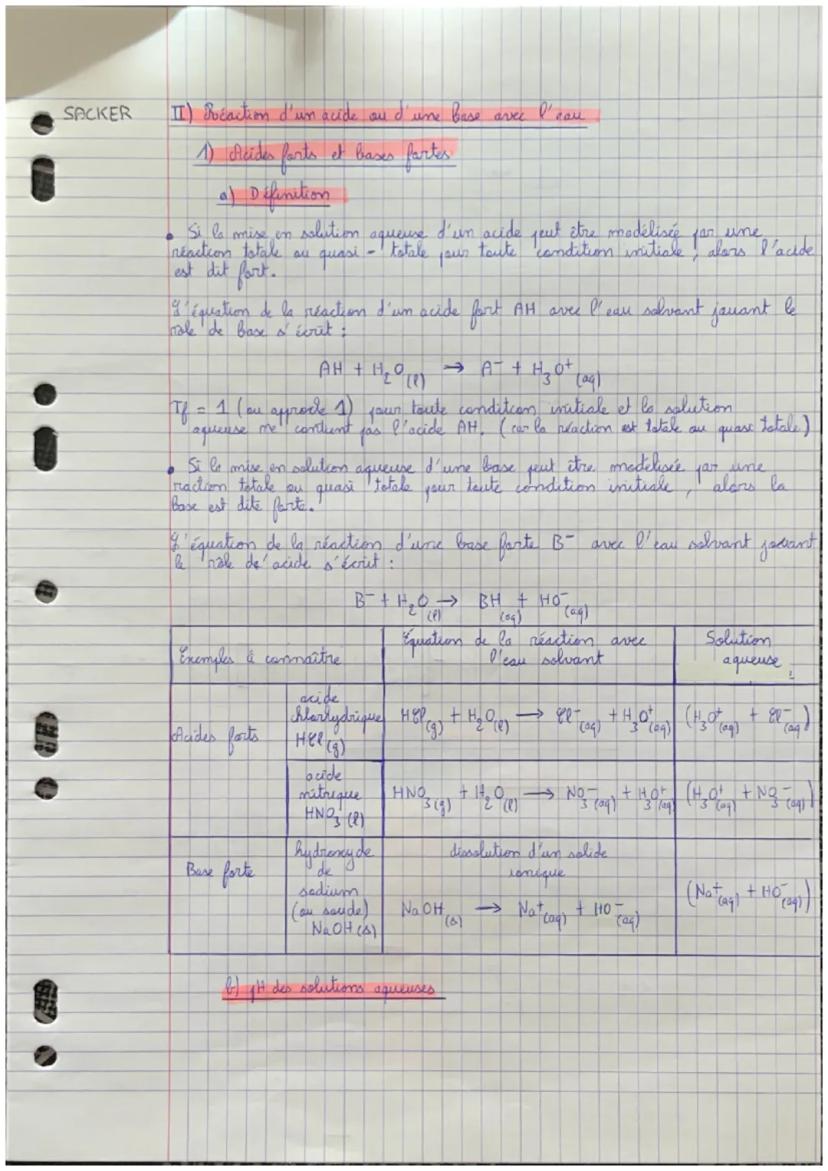 SACKER
II) Réaction d'un acide ou d'une base avec l'eau
1) Acides forts et bases fortes
a) Définition
• Si la mise en solution aqueuse d'un acide peut être modélisée par une
réaction totale ou quasi-totale pour toute condition initiale, alors l'acide
est dit fort.
L'équation de la réaction d'un acide fort AH avec l'eau solvant jouant le
rôle de base s'écrit :
AH + H₂O(l) → A⁻ + H₃O⁺(aq)
Tf = 1 (ou approche 1) pour toute condition initiale et la solution
aqueuse ne contient pas l'acide AH. (car la réaction est totale ou quasi totale)
• Si la mise en solution aqueuse d'une base peut être modélisée par une
raction totale ou quasi totale pour toute condition initiale, alors la
base est dite forte.
L'équation de la réaction d'une base forte B⁻ avec l'eau solvant jouant
le rôle de acide s'écrit :
B⁻ + H₂O(l) → BH(aq) + HO⁻(aq)
Exemples à connaître
Équation de la réaction avec
l'eau solvant
Solution
aqueuse
Acides forts
acide
chlorhydrique
HCl(g)
HCl(g) + H₂O(l) → Cl⁻(aq) + H₃O⁺(aq)
(H₃O⁺(aq) + Cl⁻(aq))
acide
nitrique
HNO₃(l)
HNO₃(g) + H₂O(l) → NO₃⁻(aq) + H₃O⁺(aq)
(H₃O⁺(aq) + NO₃⁻(aq))
Base forte
hydroxyde
de
sodium
(ou soude)
NaOH(s)
dissolution d'un solide
ionique
NaOH(s) → Na⁺(aq) + HO⁻(aq)
(Na⁺(aq) + HO⁻(aq))
b) pH des solutions aqueuses